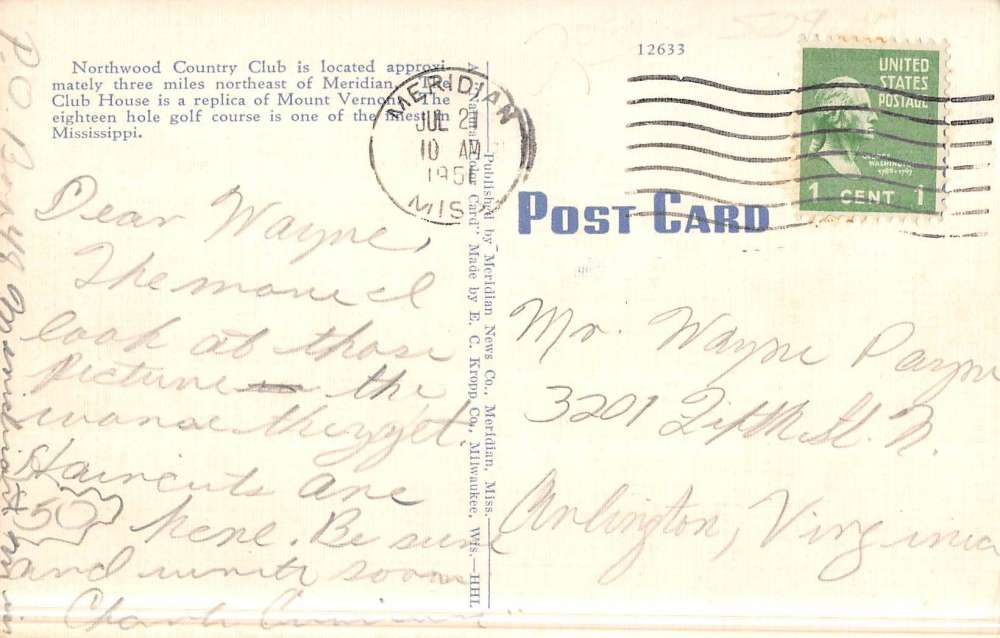 Northwood Country Club is located approxi-
mately three miles northeast of Meridian. The
Club House is a replica of Mount Vernon. The
eighteen hole golf course is one of the finest in
Mississippi.
12633
MERIDIAN
JUL 2
10 AM
195
MISS
UNITED
STATES
POSTAGE
GEORGE
WASHINGTON
1789-1797
1 CENT 1
POST CARD
Published by Meridian News Co., Meridian, Miss.
"Natural Color Card" Made by E. C. Kropp Co., Milwaukee, Wis.—HHL
Dear Wayne,
The more I
look at those
Picture the
worse they get.
Haircuts are
50 here. Be sure
and write soon
P.O. Box
Mr. Wayne Payne
3201 Fifth St. N.
Arlington, Virginia